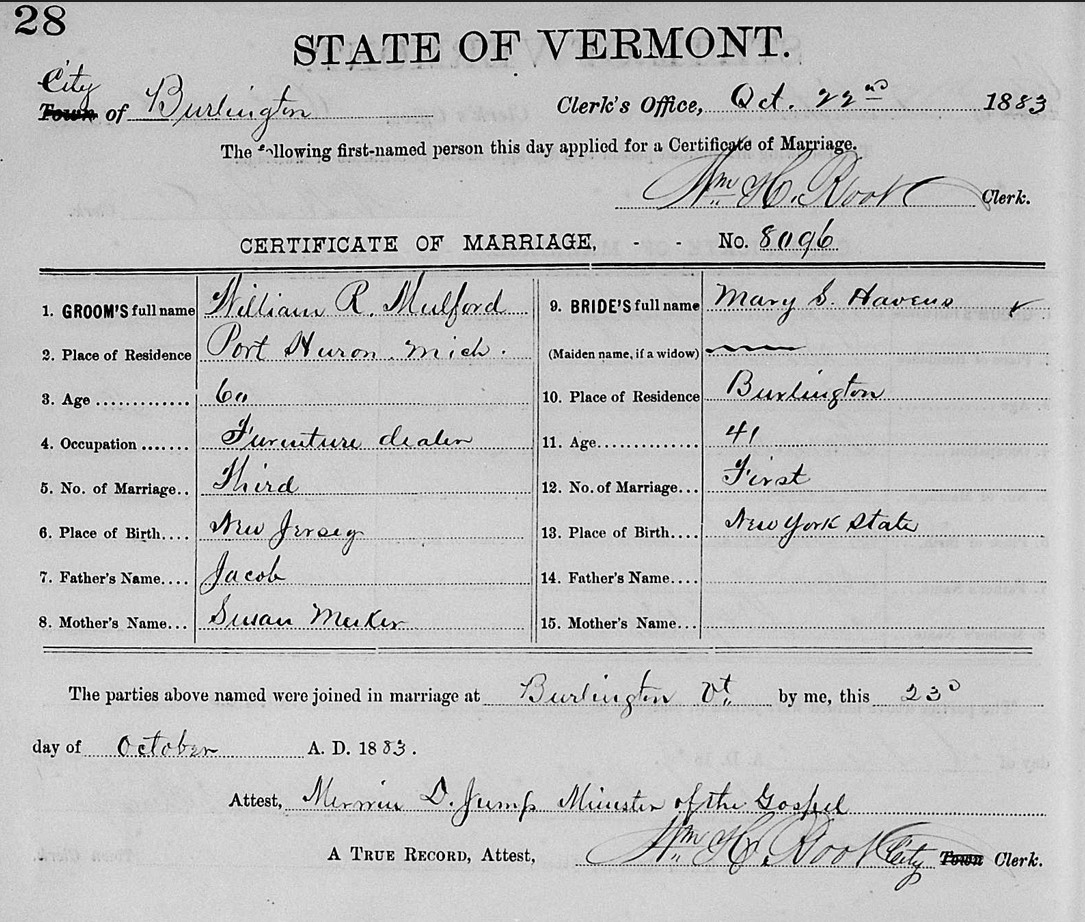 28
STATE OF VERMONT.
City
Town of Burlington Clerk's Office, Oct. 22nd 1883
The following first-named person this day applied for a Certificate of Marriage.
Wm H. Root Clerk.
CERTIFICATE OF MARRIAGE, - - No. 8096
1. GROOM'S full name William R. Mulford 9. BRIDE'S full name Mary S. Havens
2. Place of Residence Port Huron Mich. (Maiden name, if a widow)
3. Age ............ 60 10. Place of Residence Burlington
4. Occupation ....... Furniture dealer 11. Age............... 41
5. No. of Marriage.. Third 12. No. of Marriage... First
6. Place of Birth.... New Jersey 13. Place of Birth.... New York State
7. Father's Name.... Jacob 14. Father's Name....
8. Mother's Name... Susan Meeker 15. Mother's Name...
The parties above named were joined in marriage at Burlington Vt. by me, this 23d
day of October A. D. 1883.
Attest, Merwin D. Jump Minister of the Gospel
A TRUE RECORD, Attest, Wm H. Root City Town Clerk.